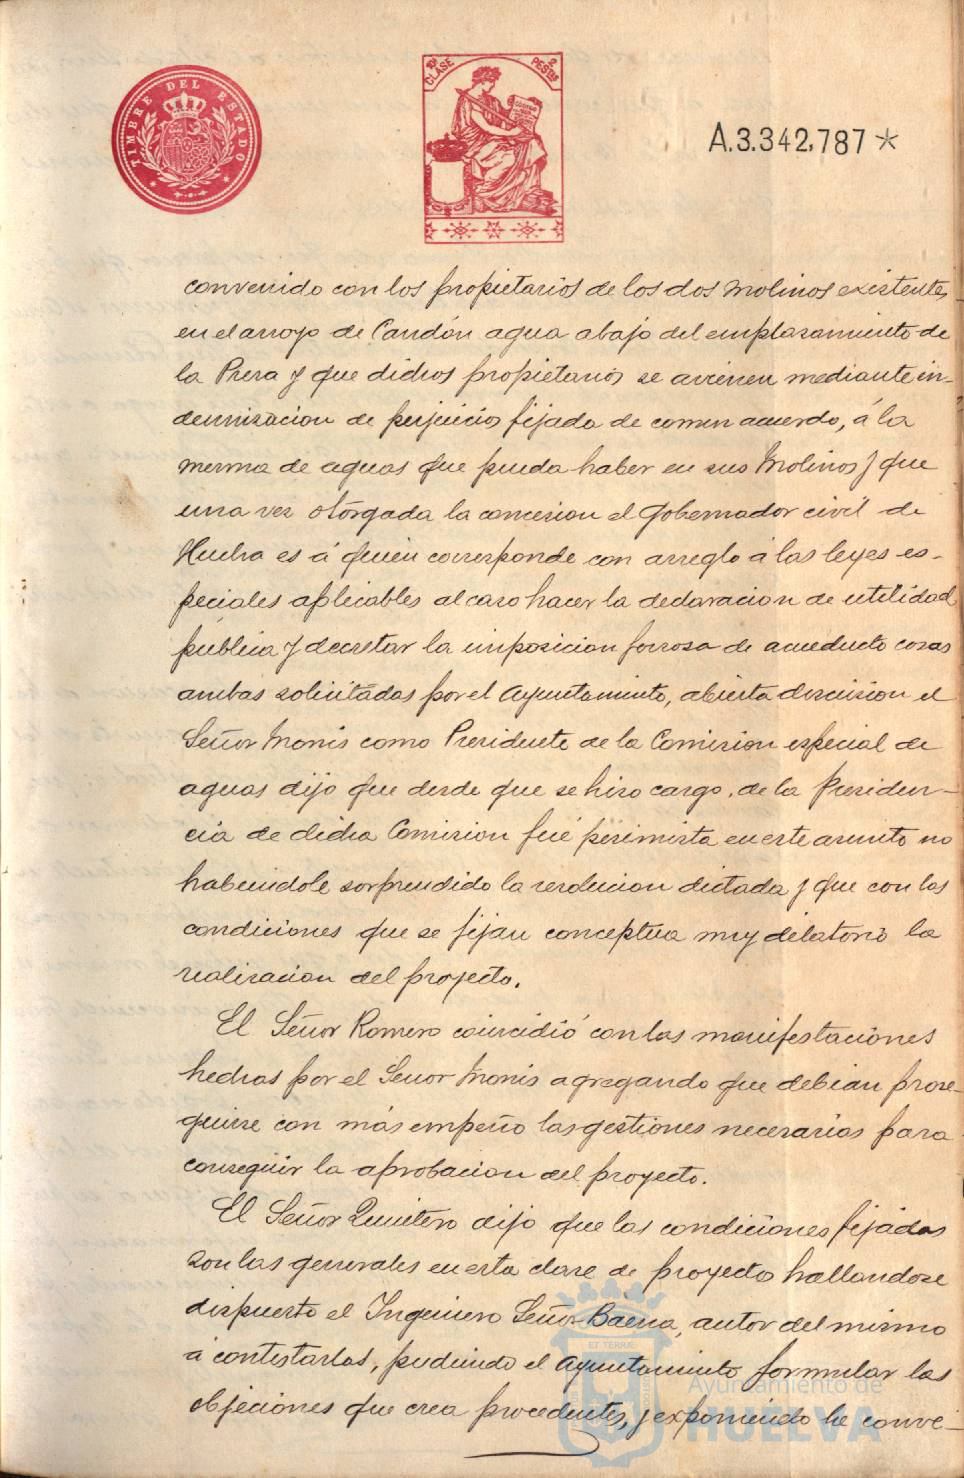 TIMBRE DEL ESTADO
10ª CLASE 2 PESTAS
A.3.342,787 *
convenido con los propietarios de los dos Molinos existentes
en el arroyo de Candón agua abajo del emplasamiento de
la Presa y que dichos propietarios se avienen mediante in-
demnisacion de perjuicios fijada de comun acuerdo, á la
merma de aguas que pueda haber en sus Molinos y que
una ves otórgada la concesion el Gobernador civil de
Huelva es á quien corresponde con arreglo á las leyes es-
peciales aplicables al caso hacer la declaracion de utilidad
pública y decretar la imposicion forzosa de acueducto cosas
ambas solicitadas por el Ayuntamiento, abierta discusion el
Señor Monis como Presidente de la Comision especial de
aguas dijo que desde que se hiso cargo, de la Presiden-
cia de dicha Comision fué pesimista en este asunto no
habiendole sorprendido la resolucion dictada y que con las
condiciones que se fijan conceptua muy dilatorio la
realisacion del proyecto.
El Señor Romero coincidió con las manifestaciones
hechas por el Señor Monis agregando que debian prose-
guirse con más empeño las gestiones necesarias para
conseguir la aprobacion del proyecto.
El Señor Quintero dijo que las condiciones fijadas
son las generales en esta clase de proyectos hallandose
dispuesto el Ingeniero Señor Baena, autor del mismo
á contestarlas, pudiendo el Ayuntamiento formular las
objeciones que crea procedentes, y exponiendo lo conve-
Ayuntamiento de
HUELVA